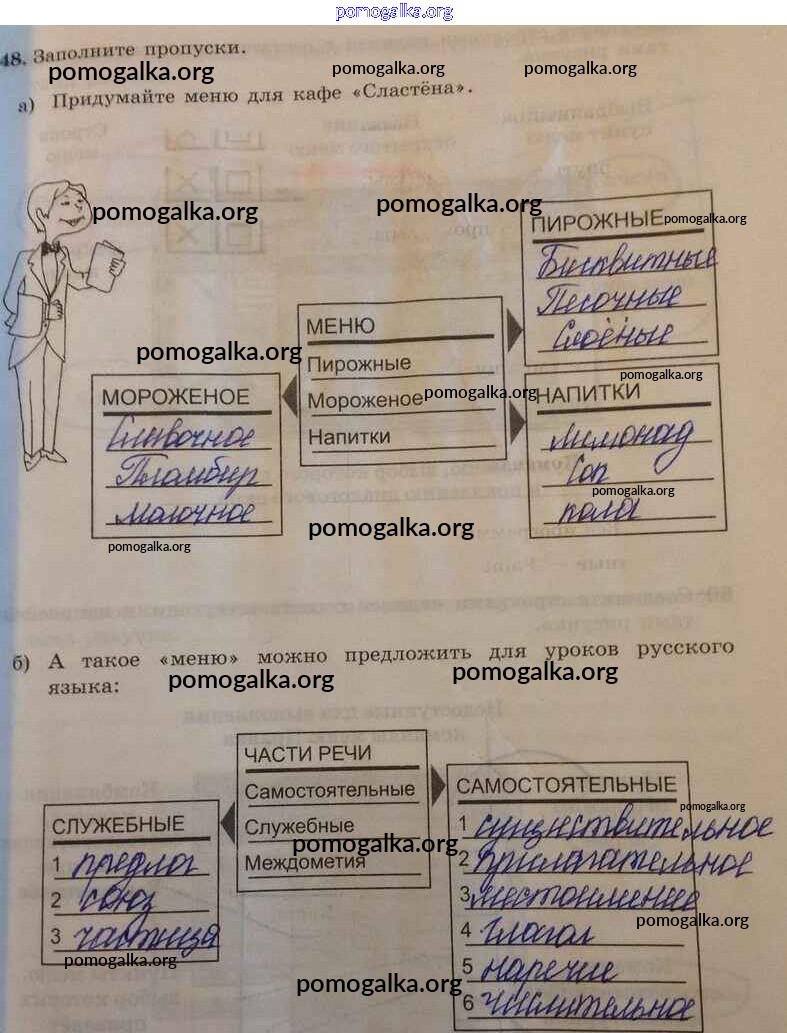 pomogalka.org
48. Заполните пропуски.
pomogalka.org pomogalka.org pomogalka.org
а) Придумайте меню для кафе «Сластёна».
pomogalka.org pomogalka.org
ПИРОЖНЫЕ pomogalka.org
Бисквитные
Песочные
Слоёные
МЕНЮ
Пирожные
Мороженое
Напитки
pomogalka.org
pomogalka.org
pomogalka.org
МОРОЖЕНОЕ
Сливочное
Пломбир
молочное
pomogalka.org
НАПИТКИ
лимонад
Сок
pomogalka.org
кола
pomogalka.org
б) А такое «меню» можно предложить для уроков русского
языка:
pomogalka.org pomogalka.org
ЧАСТИ РЕЧИ
Самостоятельные
Служебные
Междометия
pomogalka.org
СЛУЖЕБНЫЕ
1 предлог
2 союз
3 частица
pomogalka.org
САМОСТОЯТЕЛЬНЫЕ
pomogalka.org
1 существительное
2 прилагательное
3 местоимение
pomogalka.org
4 глагол
5 наречие
6 числительное
pomogalka.org